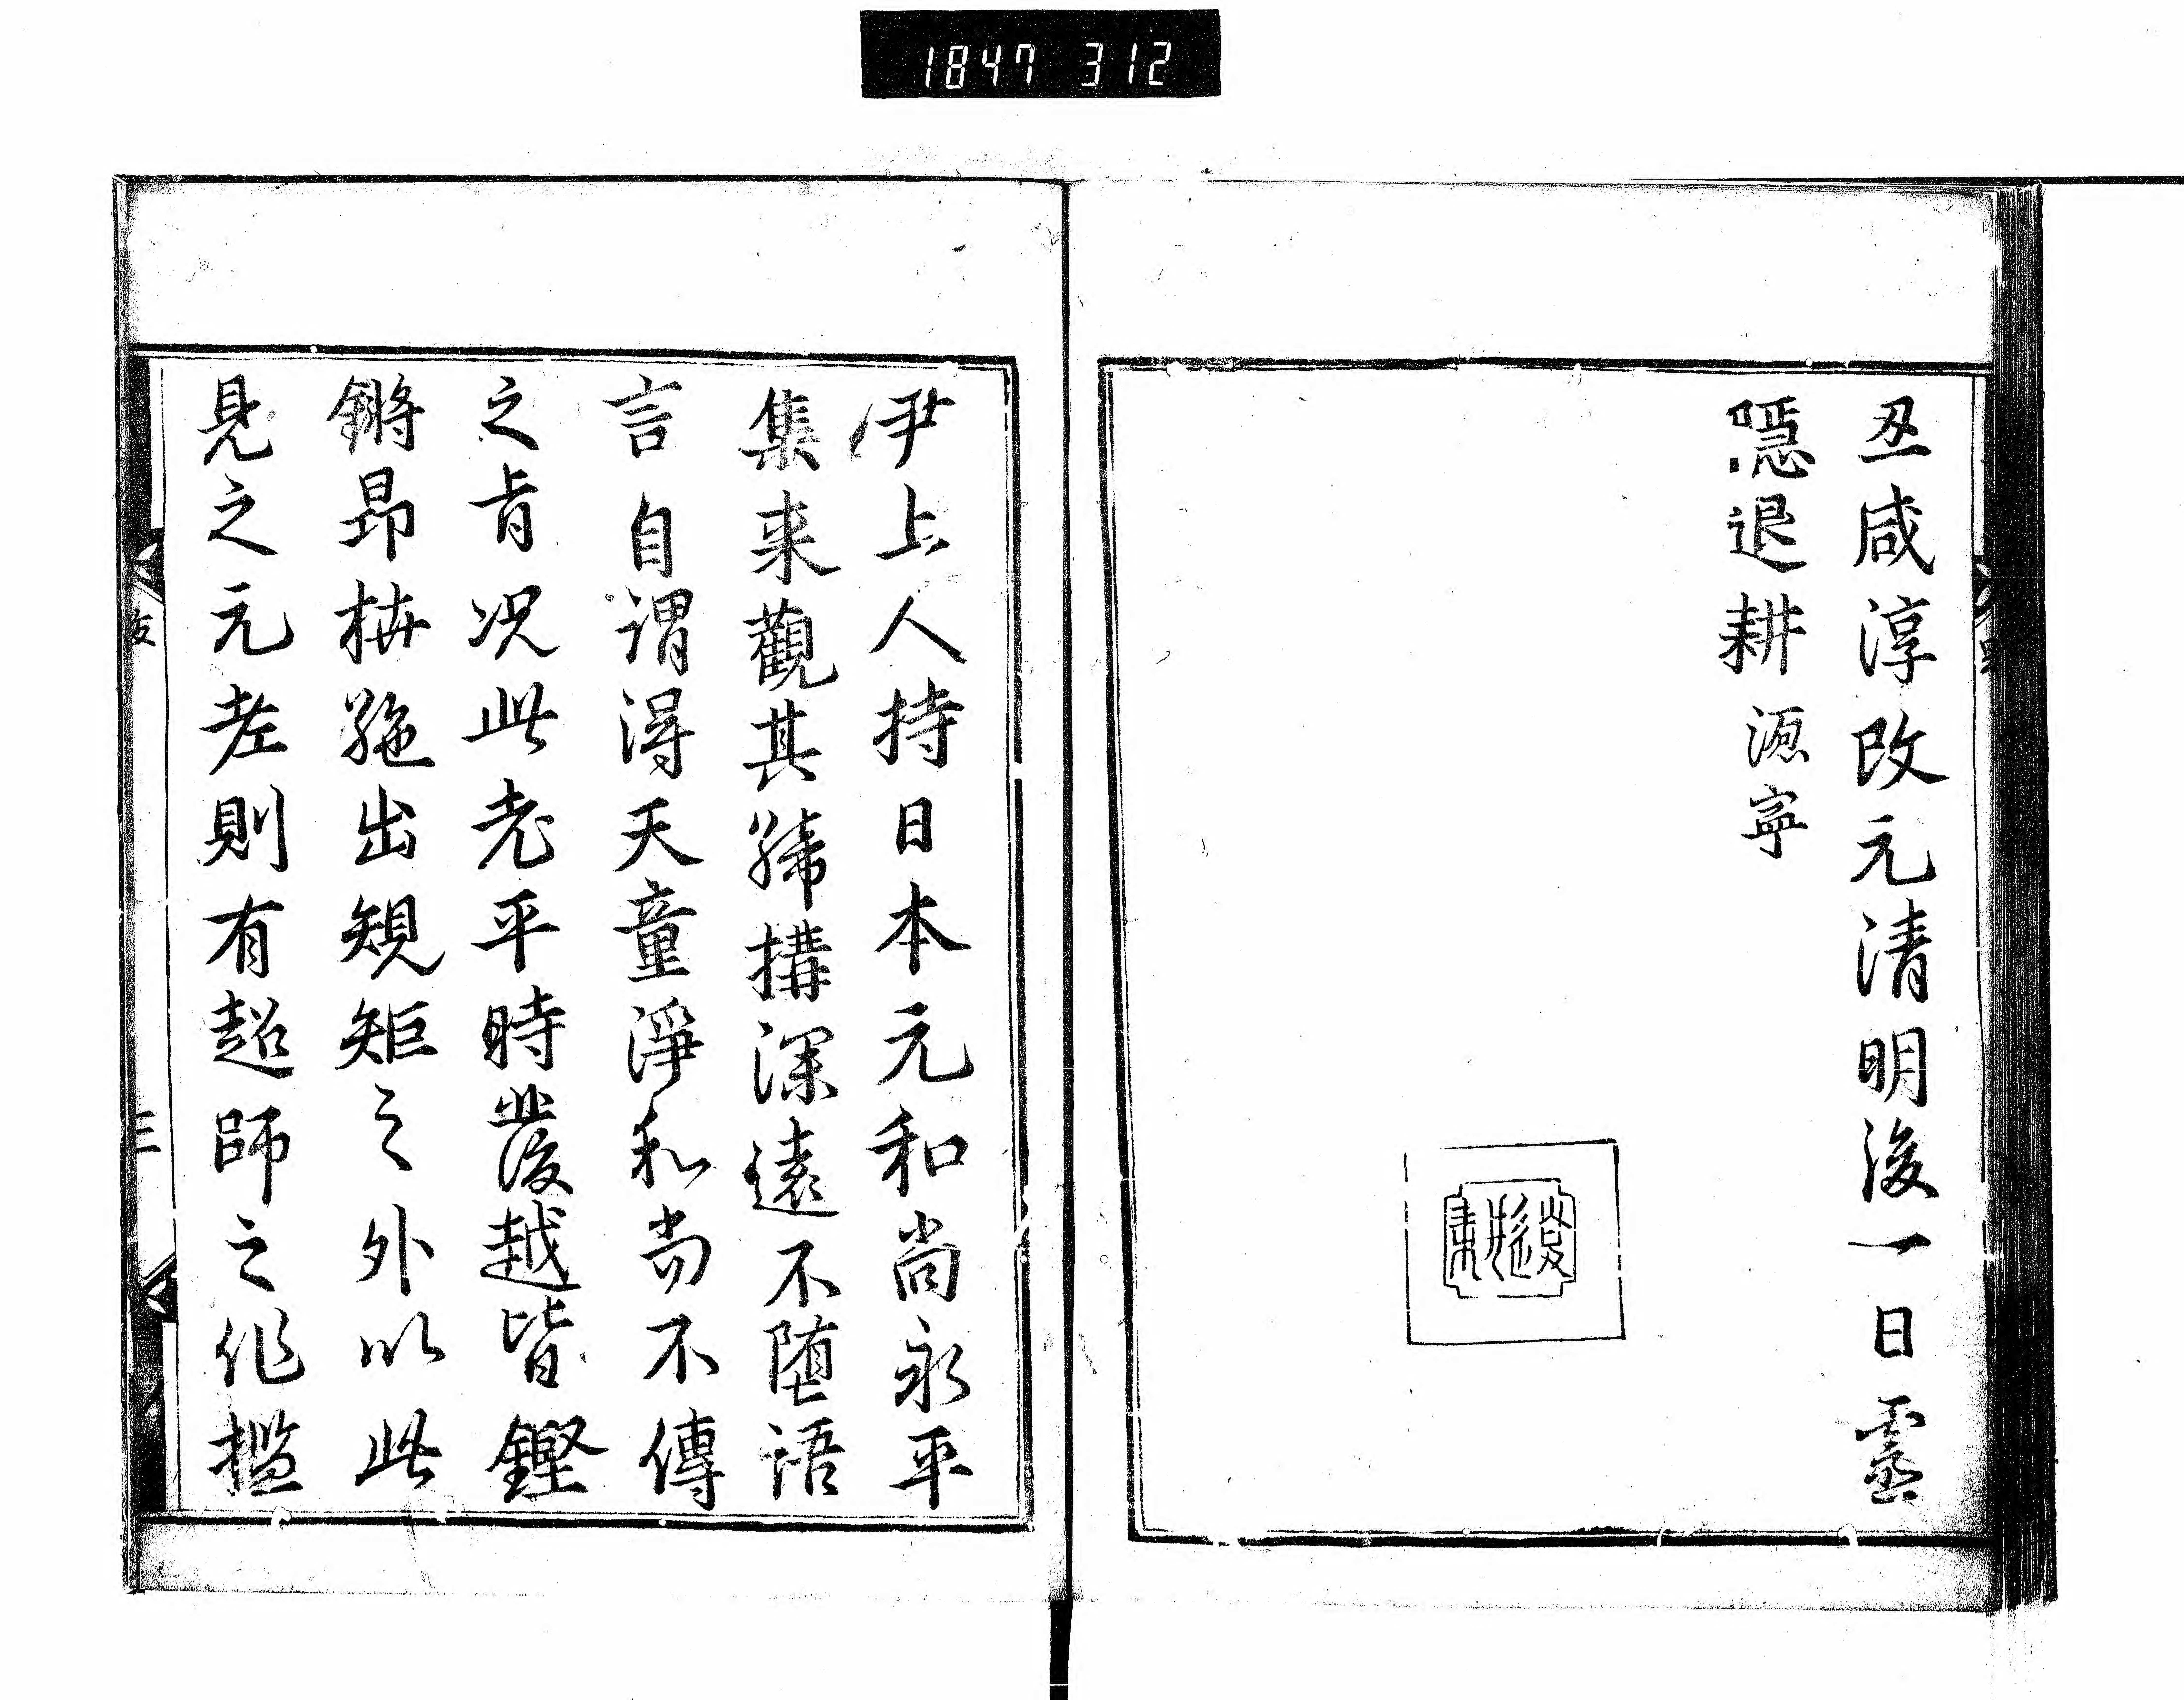 1847 312
丑咸淳改元清明後一日靈
隱退耕 徳寧
尹上人持日本元和尚永平
集来觀其締搆深遠不堕語
言自謂得天童淨和尚不傳
之旨况此老平時發越皆鏗
鏘昂枿絁出規矩之外以此
見之元老則有超師之作
三